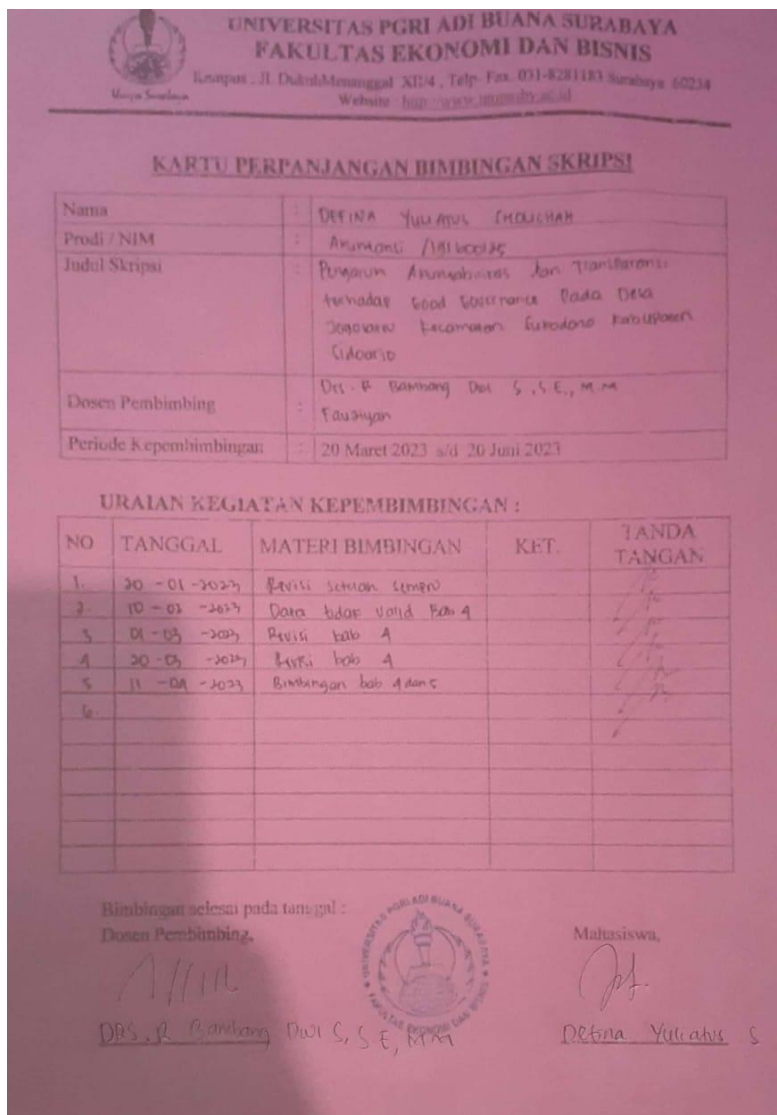 UNIVERSITAS PGRI ADI BUANA SURABAYA
FAKULTAS EKONOMI DAN BISNIS
Kampus : Jl. DukuhMenanggal XII/4 , Telp. Fax. 031-8281183 Surabaya 60234
Website :
KARTU PERPANJANGAN BIMBINGAN SKRIPSI
Nama : DEFINA YULIATUS
Prodi / NIM : Akuntansi
Judul Skripsi : Pengaruh Akuntabilitas dan Transparansi
terhadap Good Governance Pada Desa
Kecamatan Sukodono Kabupaten
Sidoarjo
Dosen Pembimbing : Drs. R Bambang Dwi S , S.E., M.M
Fauziyah
Periode Kepembimbingan : 20 Maret 2023 s/d 20 Juni 2023
URAIAN KEGIATAN KEPEMBIMBINGAN :
NO TANGGAL MATERI BIMBINGAN KET. TANDA TANGAN
1. 20 - 01 - 2023 Revisi setelah sempro
2. 10 - 02 - 2023 Data tidak valid Bab 4
3 01 - 03 - 2023 Revisi bab 4
4 20 - 03 - 2023 Revisi bab 4
5 11 - 04 - 2023 Bimbingan bab 4 dan 5
6.
Bimbingan selesai pada tanggal :
Dosen Pembimbing, Mahasiswa,
UNIVERSITAS PGRI ADI BUANA SURABAYA
FAKULTAS EKONOMI DAN BISNIS
DRS. R Bambang DWI S, S E, MM Defina Yuliatus S